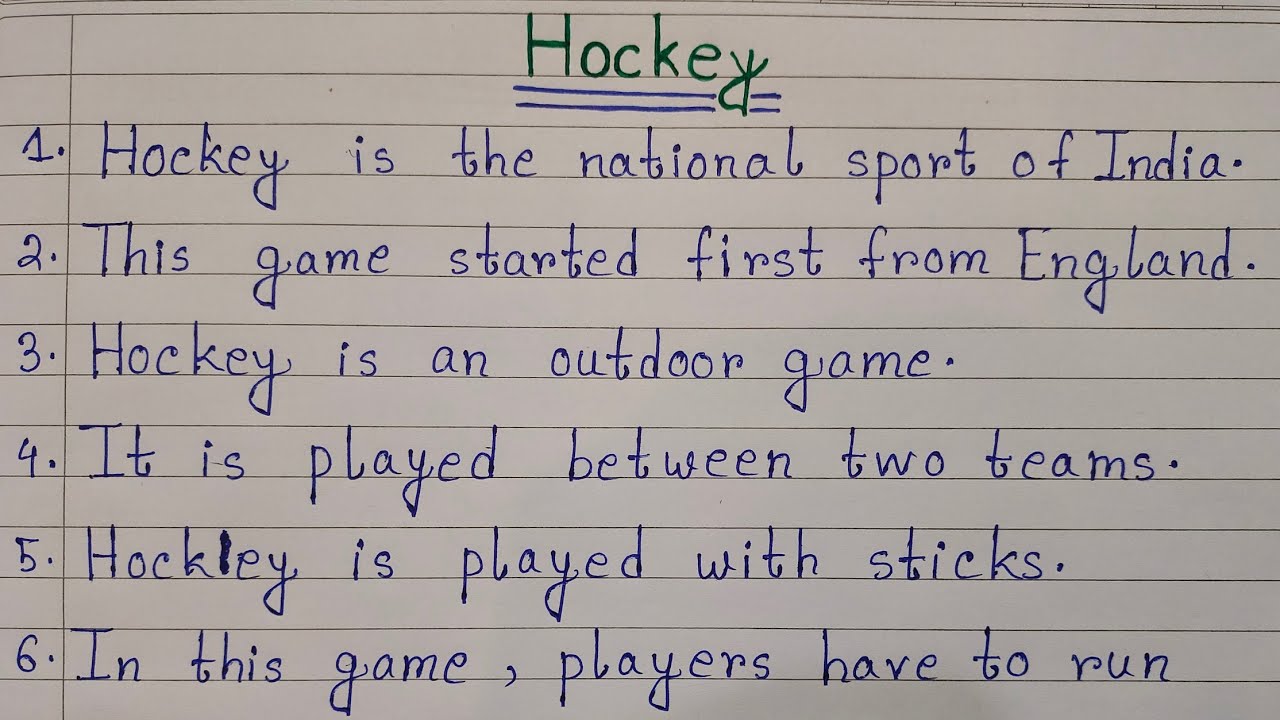 Hockey
1. Hockey is the national sport of India.
2. This game started first from England.
3. Hockey is an outdoor game.
4. It is played between two teams.
5. Hockey is played with sticks.
6. In this game, players have to run